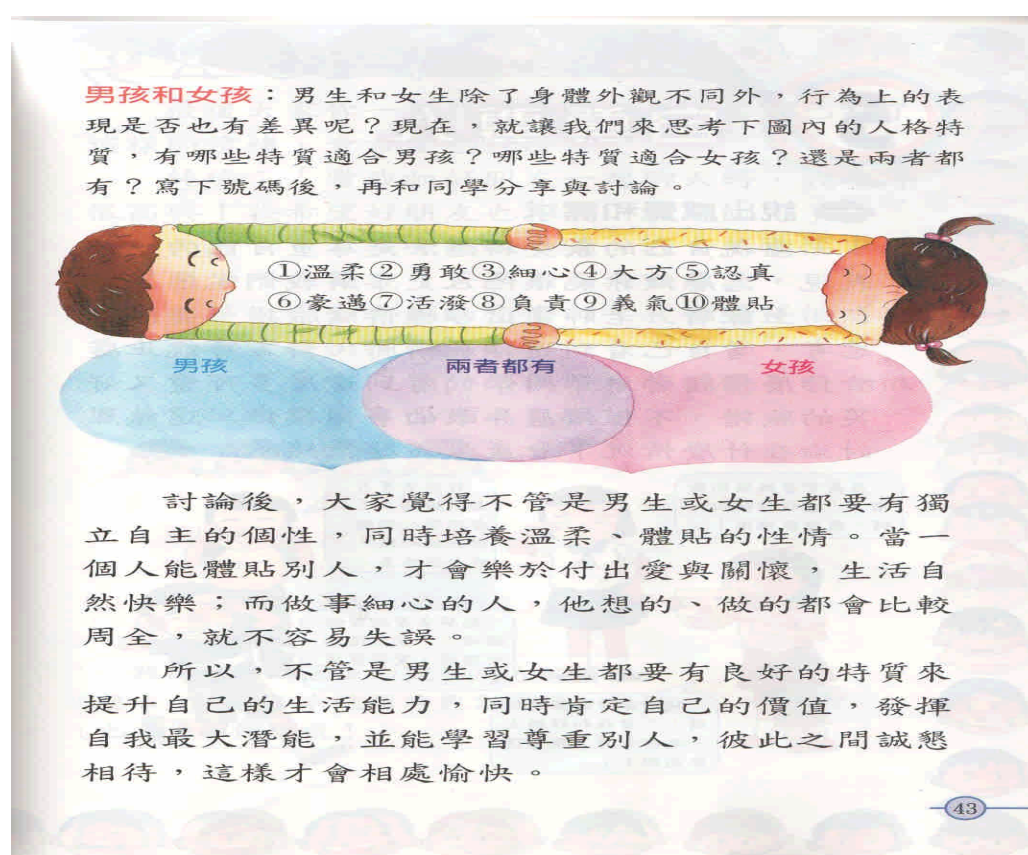 男孩和女孩：男生和女生除了身體外觀不同外，行為上的表
現是否也有差異呢？現在，就讓我們來思考下圖內的人格特
質，有哪些特質適合男孩？哪些特質適合女孩？還是兩者都
有？寫下號碼後，再和同學分享與討論。
①溫柔②勇敢③細心④大方⑤認真
⑥豪邁⑦活潑⑧負責⑨義氣⑩體貼
男孩 兩者都有 女孩
討論後，大家覺得不管是男生或女生都要有獨
立自主的個性，同時培養溫柔、體貼的性情。當一
個人能體貼別人，才會樂於付出愛與關懷，生活自
然快樂；而做事細心的人，他想的、做的都會比較
周全，就不容易失誤。
所以，不管是男生或女生都要有良好的特質來
提升自己的生活能力，同時肯定自己的價值，發揮
自我最大潛能，並能學習尊重別人，彼此之間誠懇
相待，這樣才會相處愉快。
43